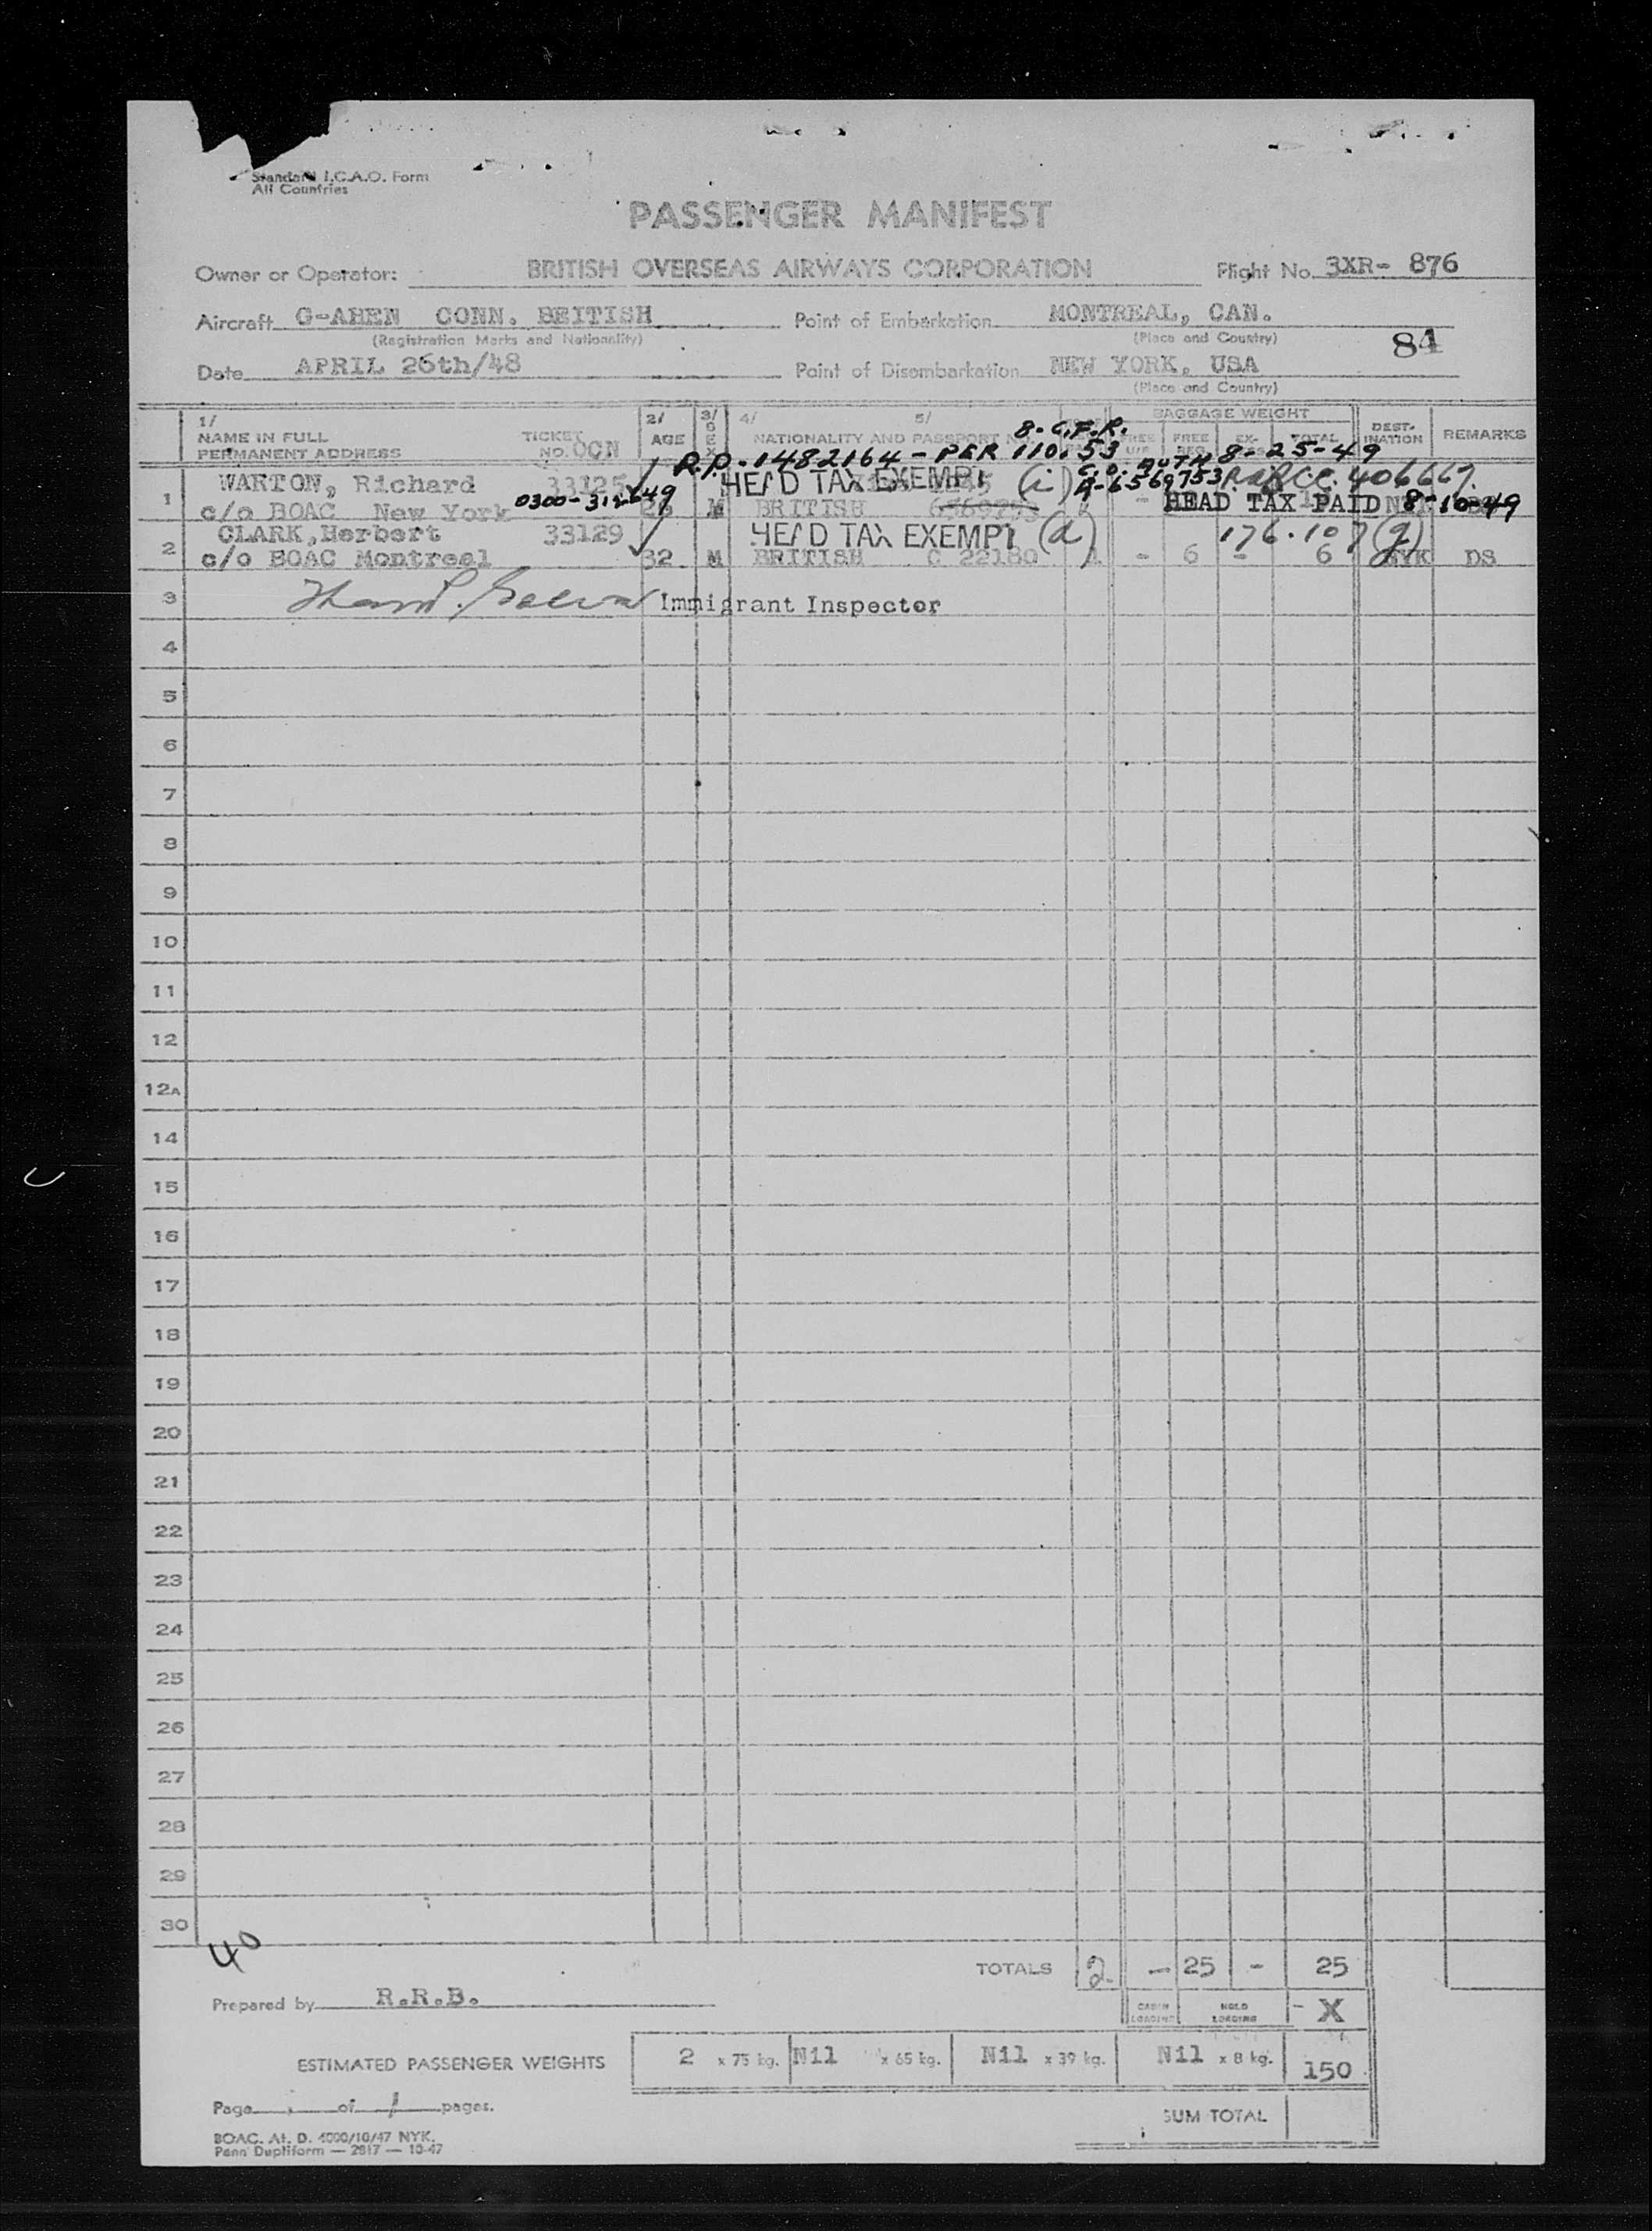 Standard I.C.A.O. Form
All Countries
PASSENGER MANIFEST
Owner or Operator: BRITISH OVERSEAS AIRWAYS CORPORATION Flight No. 3XR- 876
Aircraft G-AHEN CONN. BRITISH Point of Embarkation MONTREAL, CAN.
(Registration Marks and Nationality) (Place and Country)
84
Date APRIL 26th/48 Point of Disembarkation NEW YORK, USA
(Place and Country)
1/ 2/ 3/ 4/ 5/ BAGGAGE WEIGHT
NAME IN FULL TICKET NO. OCN AGE SEX NATIONALITY AND PASSPORT NO. FREE FREE EX- TOTAL DEST-INATION REMARKS
PERMANENT ADDRESS
8-C.F.R.
R.P.-1482164-PER 110.53 8-25-49
WARTON, Richard 33125 HEAD TAX EXEMPT (i) C.O. AUTH A-6569753 406667
1 c/o BOAC New York 0300-312649 M BRITISH HEAD TAX PAID 8-10-49
CLARK, Herbert 33129 HEAD TAX EXEMPT (a) 176.107(g)
2 c/o BOAC Montreal 32 M BRITISH C 22180 1 - 6 - 6 NYK DS
3 Immigrant Inspector
4
5
6
7
8
9
10
11
12
12A
14
15
16
17
18
19
20
21
22
23
24
25
26
27
28
29
30
40
TOTALS 2 - 25 - 25
Prepared by R.R.B.
CABIN LOADING HOLD LOADING - X
ESTIMATED PASSENGER WEIGHTS 2 x 75 kg. Nil x 65 kg. Nil x 39 kg. Nil x 8 kg. 150
Page of 1 pages.
SUM TOTAL
BOAC. At. D. 4000/10/47 NYK.
Penn Dupliform — 2817 — 10-47